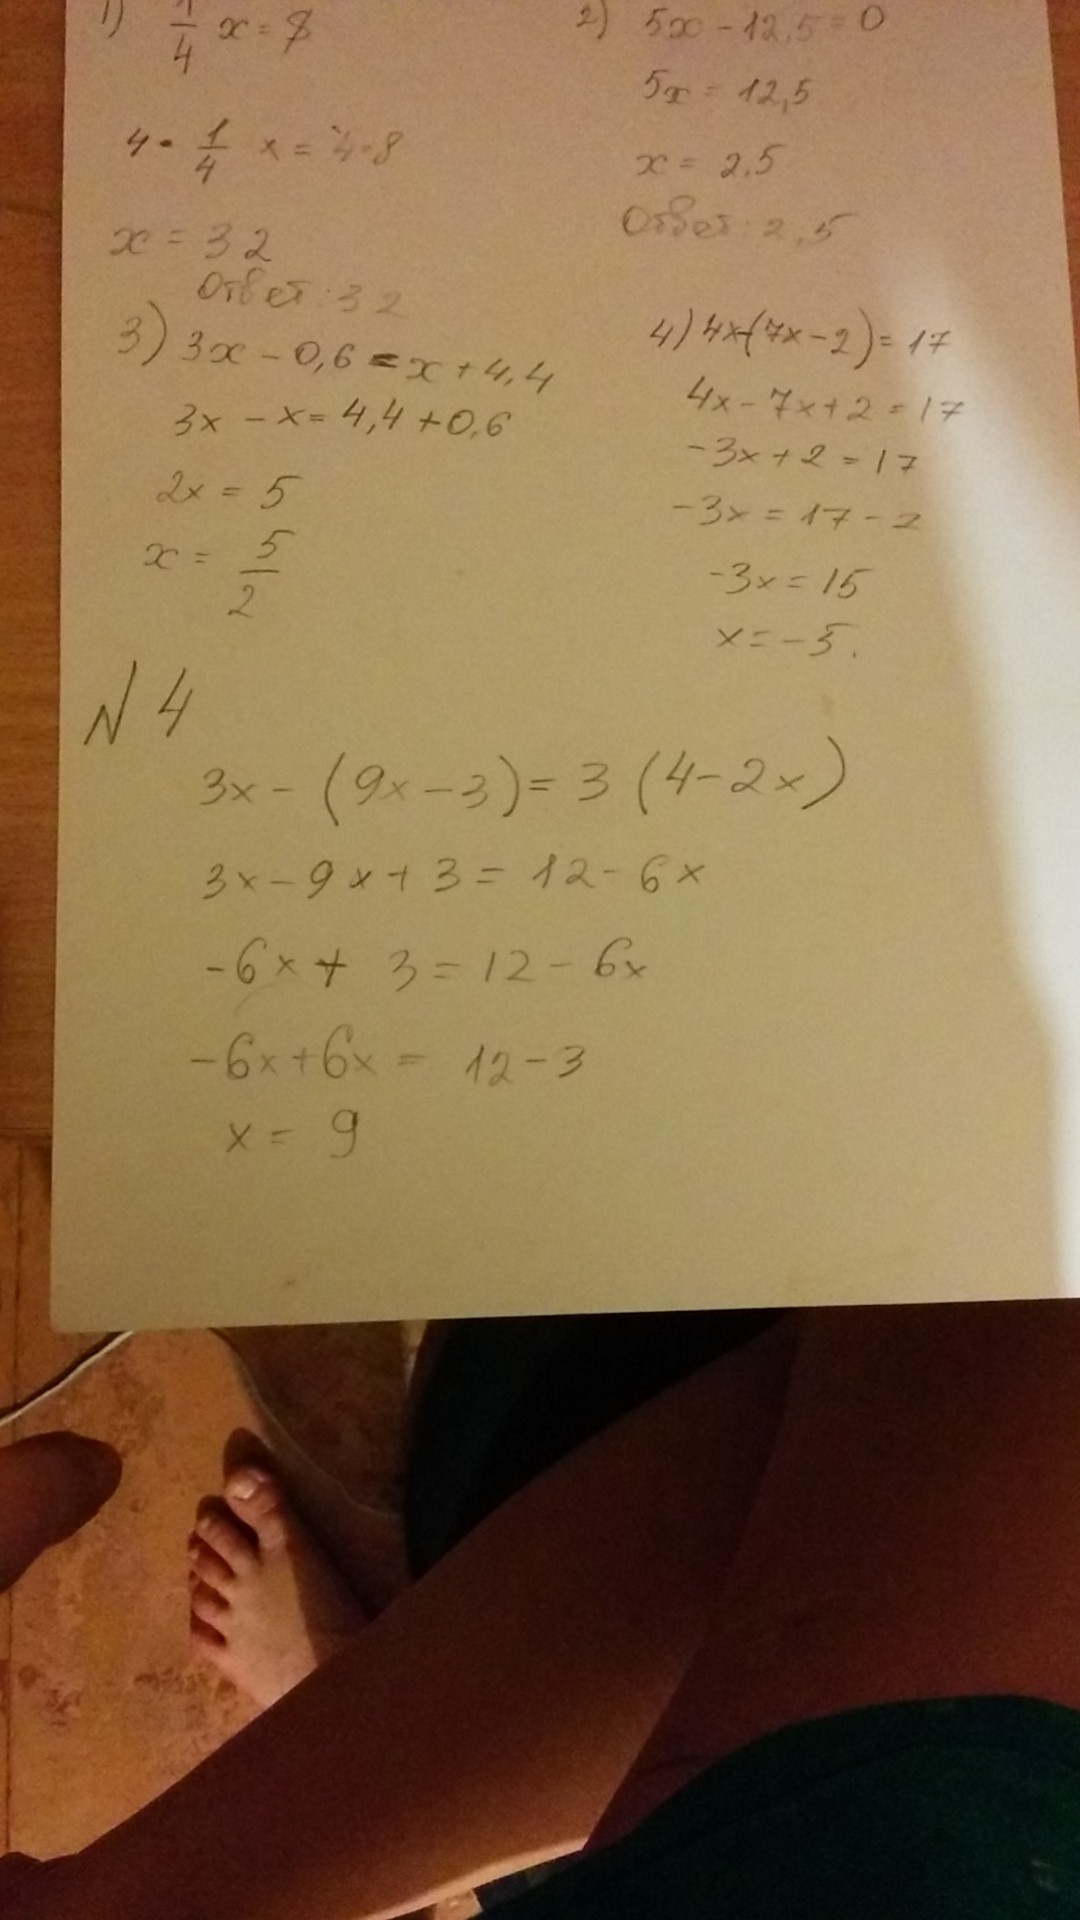 1) 1/4 x = 8
4 · 1/4 x = 4·8
x = 32
Ответ: 32
2) 5x - 12,5 = 0
5x = 12,5
x = 2,5
Ответ: 2,5
3) 3x - 0,6 = x + 4,4
3x - x = 4,4 + 0,6
2x = 5
x = 5/2
4) 4x-(7x-2) = 17
4x - 7x + 2 = 17
-3x + 2 = 17
-3x = 17 - 2
-3x = 15
x = -5.
N 4
3x - (9x - 3) = 3 (4 - 2x)
3x - 9x + 3 = 12 - 6x
-6x + 3 = 12 - 6x
-6x + 6x = 12 - 3
x = 9